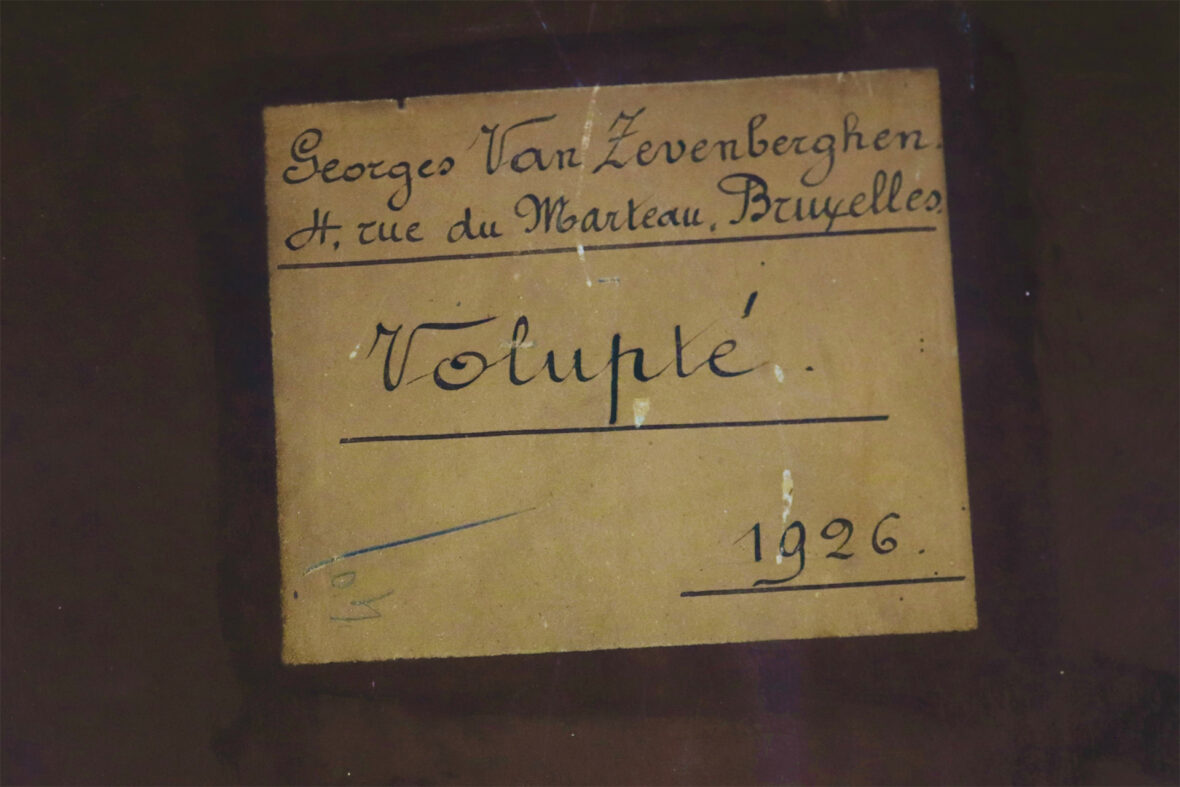 Georges Van Zevenberghen.
4, rue du Marteau, Bruxelles.
Volupté.
1926.